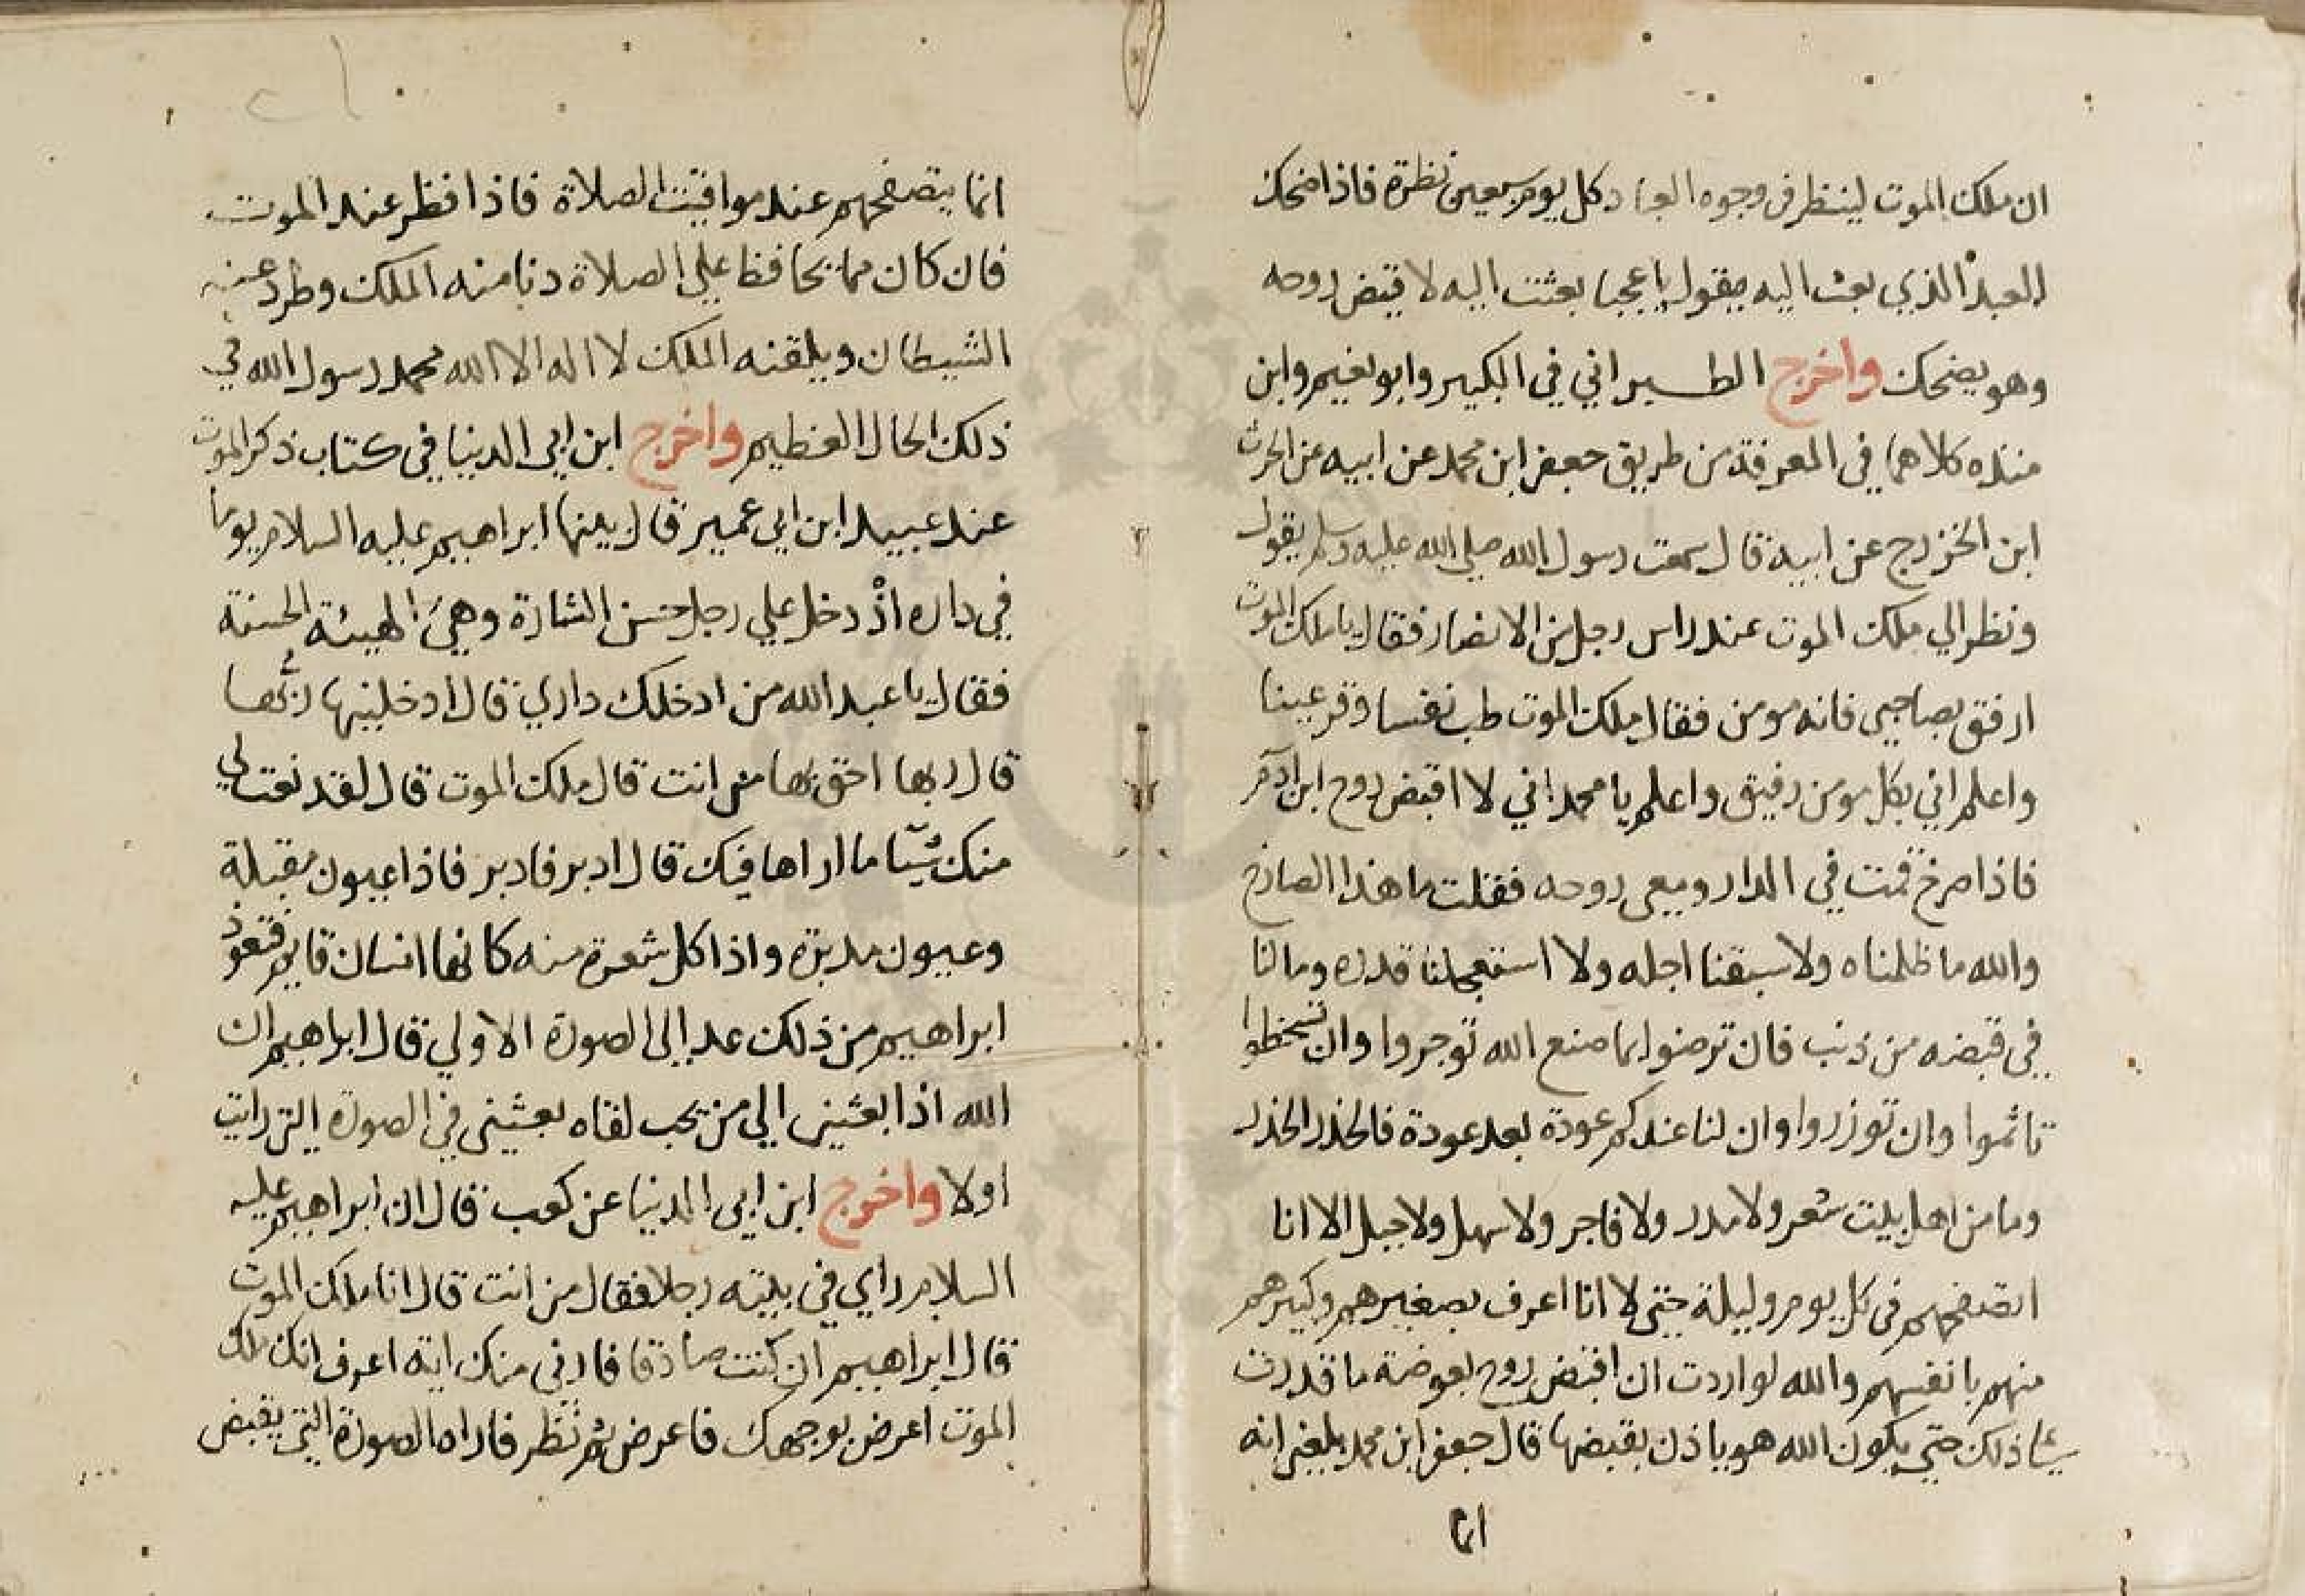 ان ملك الموت لينظر في وجوه العباد كل يوم سبعين نظرة فاذا ضحك
العبد الذي بعث اليه يقول يا عجبا بعثت اليه لاقبض روحه
وهو يضحك واخرج الطبراني في الكبير وابو نعيم وابن
منده كلاهما في المعرفة من طريق جعفر ابن محمد عن ابيه عن الحرث
ابن الخزرج عن ابيه قال سمعت رسول الله صلي الله عليه وسلم يقول
ونظر الي ملك الموت عند راس رجل من الانصار فقال يا ملك الموت
ارفق بصاحبي فانه مومن فقال ملك الموت طب نفسا وقر عينا
واعلم اني بكل مومن رفيق واعلم يا محمد اني لا اقبض روح ابن آدم
فاذا صرخ قمت في الدار ومعي روحه فقلت ما هذا الصارخ
والله ما ظلمناه ولا سبقنا اجله ولا استعجلنا قدره وما لنا
في قبضه من ذنب فان ترضوا بما صنع الله توجروا وان تسخطوا
تاثموا وان توزروا وان لنا عندكم عودة بعد عودة فالحذر الحذر
وما من اهل بيت شعر ولا مدر ولا فاجر ولا سهل ولا جبل الا انا
اتصفحهم في كل يوم وليلة حتي لا انا اعرف بصغيرهم وكبيرهم
منهم بانفسهم والله لو اردت ان اقبض روح بعوضة ما قدرت
علي ذلك حتي يكون الله هو ياذن بقبضها قال جعفر ابن محمد بلغني انه
انما
انما يتصفحهم عند مواقيت الصلاة فاذا فظر عند الموت
فان كان مما يحافظ علي الصلاة دنا منه الملك وطرد عنه
الشيطان ويلقنه الملك لا اله الا الله محمد رسول الله في
ذلك الحال العظيم واخرج ابن ابي الدنيا في كتاب ذكر الموت
عند عبيد ابن ابي عمير قال بينما ابراهيم عليه السلام يوما
في داره اذْ دخل علي رجل حسن الشارة وهيَ الهيئة الحسنة
فقال يا عبد الله من ادخلك داري قال ادخلينها ربُّها
قال ربها احق بها من انت قال ملك الموت قال لقد نعت لي
منك شيّا ما اراها فيك قال ادبر فادبر فاذا عيون مقبلة
وعيون مدبرة واذا كل شعرة منه كانها انسان قايم فتعوذ
ابراهيم من ذلك عد الى الصورة الاولي قال ابراهيم ان
الله اذا بعثني الي من يحب لقاه بعثني في الصورة التي رايت
اولا واخرج ابن ابي الدنيا عن كعب قال ان ابراهيم عليه
السلام راي في بيته رجلا فقال من انت قال انا ملك الموت
قال ابراهيم ان كنت صادقا فارني منك اية اعرف انك ملك
الموت اعرض بوجهك فاعرض ثم نظر فاراه الصورة التي يقبض